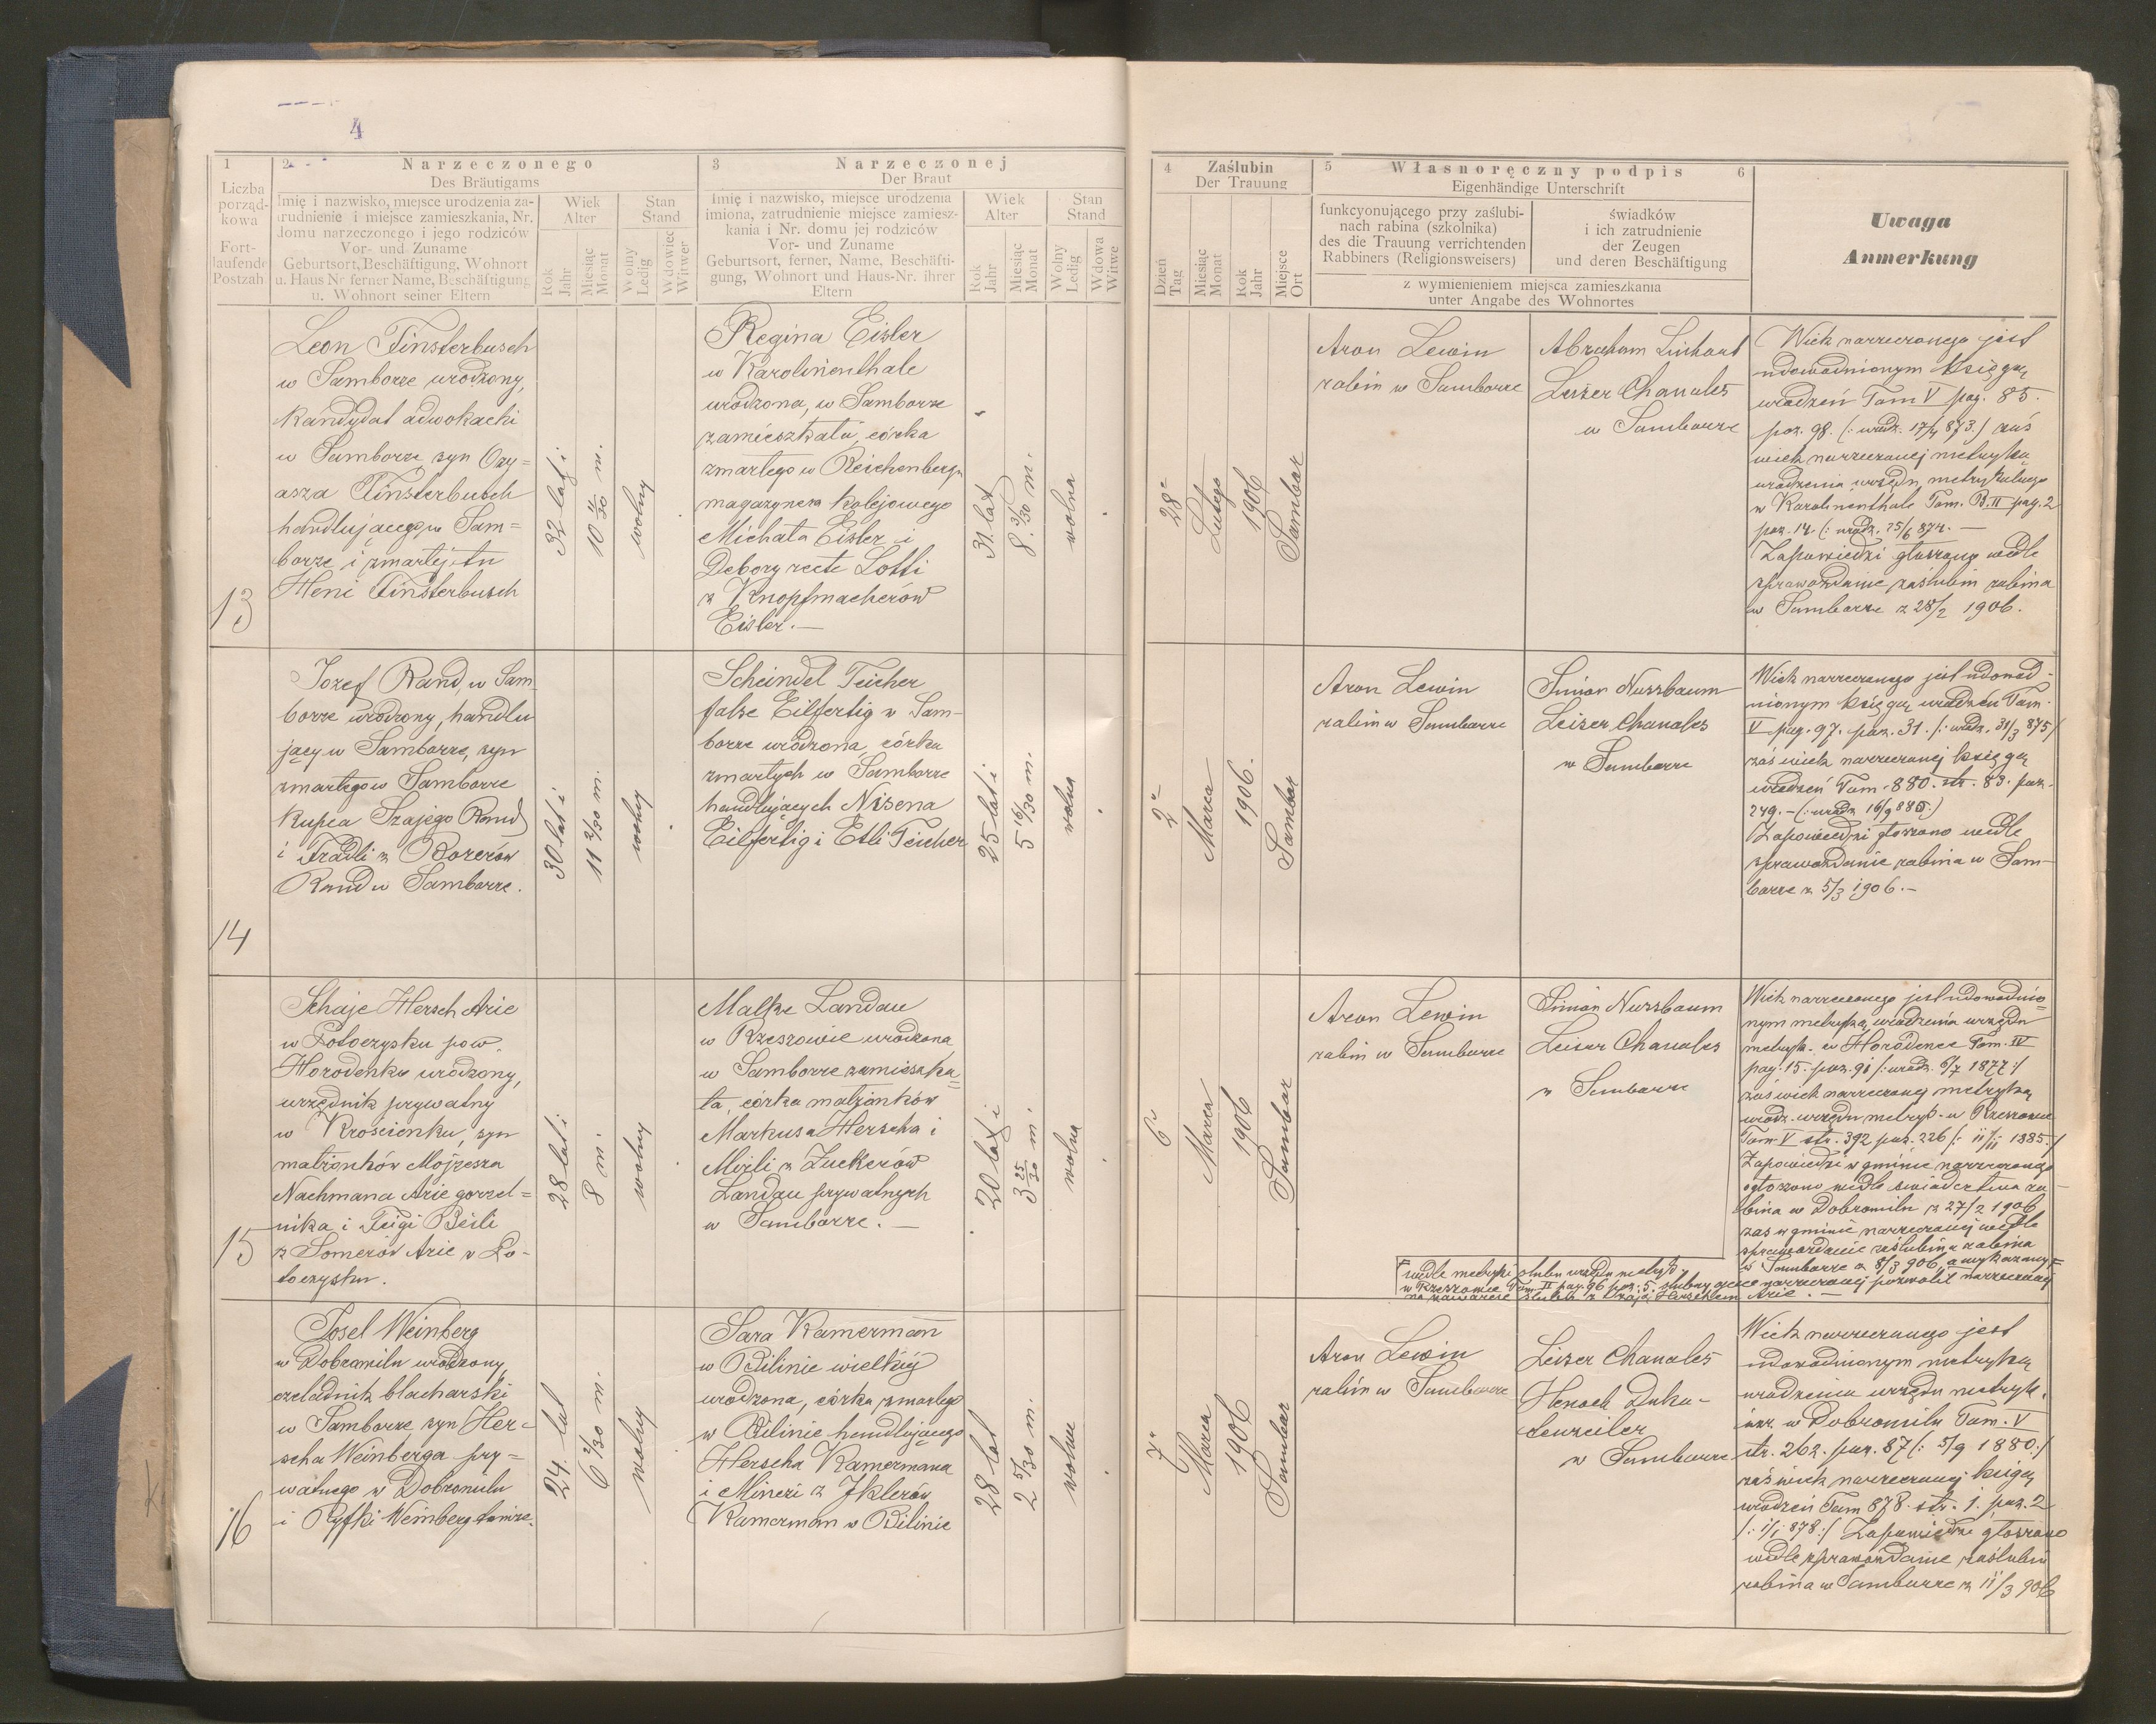 4
1
Liczba
porząd-
kowa
Fort-
laufende
Postzah
2
Narzeczonego
Des Bräutigams
Imię i nazwisko, miejsce urodzenia za-
trudnienie i miejsce zamieszkania, Nr.
domu narzeczonego i jego rodziców
Vor- und Zuname
Geburtsort, Beschäftigung, Wohnort
u. Haus Nr ferner Name, Beschäftigung
u. Wohnort seiner Eltern
Wiek
Alter
Rok
Jahr
Miesiąc
Monat
Stan
Stand
Wolny
Ledig
Wdowiec
Witwer
3
Narzeczonej
Der Braut
Imię i nazwisko, miejsce urodzenia
imiona, zatrudnienie miejsce zamiesz-
kania i Nr. domu jej rodziców
Vor- und Zuname
Geburtsort, ferner, Name, Beschäfti-
gung, Wohnort und Haus-Nr. ihrer
Eltern
Wiek
Alter
Rok
Jahr
Miesiąc
Monat
Stan
Stand
Wolny
Ledig
Wdowa
Witwe
4
Zaślubin
Der Trauung
Dzień
Tag
Miesiąc
Monat
Rok
Jahr
Miejsce
Ort
5
Własnoręczny podpis
6
Eigenhändige Unterschrift
funkcyonującego przy zaślubi-
nach rabina (szkolnika)
des die Trauung verrichtenden
Rabbiners (Religionsweisers)
świadków
i ich zatrudnienie
der Zeugen
und deren Beschäftigung
z wymienieniem miejsca zamieszkania
unter Angabe des Wohnortes
Uwaga
Anmerkung
13
Leon Finsterbusch
w Samborze urodzony,
kandydat adwokacki
w Samborze syn Ozy=
asza Finsterbusch
handlującego w Sam=
borze i zmarłej tu
Heni Finsterbusch
32 lat i
10 11/30 m.
wolny
Regina Eisler
w Karolinenthale
urodzona, w Samborze
zamieszkała, córka
zmarłego w Reichenbergu
magazyniera kolejowego
Michała Eisler i
Debory recte Lotti
z Knopfmacherów
Eisler. —
31. lat
8. 3/30 m.
wolna
28
Lutego
1906
Sambor
Aron Lewin
rabin w Samborze
Abraham Linhart
Leiser Chanales
w Samborze
Wiek narzeczonego jest
udowodnionym księgą
urodzeń Tom V pag. 85.
poz. 98. (: urodz. 17/4 873.) zaś
wiek narzeczonej metryką
urodzenia urzędu metrykalnego
w Karolinenthale Tom. B. II pag. 2
poz. 14. (: urodz. 25/6 874. —
Zapowiedzi głoszono wedle
sprawozdanie zaślubin rabina
w Samborze z 28/2 1906.
14
Jozef Rand, w Sam-
borze urodzony, handlu
jący w Samborze, syn
zmarłego w Samborze
kupca Szajego Rand
i Fradli z Bozerów
Rand w Samborze.
30 lat i
11 2/30 m.
wolny
Scheindel Teicher
false Eilfertig w Sam-
borze urodzona, córka
zmarłych w Samborze
handlujących Nisena
Eilfertig i Etli Teicher
25 lat i
5 16/30 m.
wolna
2
Marca
1906.
Sambor
Aron Lewin
rabin w Samborze
Simon Nussbaum
Leiser Chanales
w Samborze
Wiek narzeczonego jest udowod-
nionym księgą urodzeń Tom.
V pag. 97. poz. 31. /: urodz. 31/3 875/
zaś wiek narzeczonej księgą
urodzeń Tom. 880. str. 83. poz.
249. - (: urodz. 16/9 880:)
Zapowiedzi głoszono wedle
sprawozdanie rabina w Sam-
borze z 5/3 1906. -
15
Schaje Hersch Arie
w Potoczysku pow.
Horodenka urodzony,
urzędnik prywatny
w Krościenku, syn
małżonków Mojżesza
Nachmana Arie gorzel=
nika i Feigi Beili
z Somerów Arie w Po-
toczysku.
28 lat i
8 m.
wolny
Malke Landau
w Rzeszowie urodzona
w Samborze zamieszka=
ła, córka małżonków
Markusa Herscha i
Mirli z Zuckerów
Landau prywatnych
w Samborze. —
20 lat i
3 25/30 m.
wolna
6
Marca
1906
Sambor
Aron Lewin
rabin w Samborze
Simon Nussbaum
Leiser Chanales
w Samborze
Wiek narzeczonego jest udowodnio=
nym metryką urodzenia urzędu
metryk. w Horodence Tom. IV
pag. 15. poz. 91 /: urodz. 6/7 1877:/
zaś wiek narzeczonej metryką
urodz. urzędu metryk. w Rzeszowie
Tom V str. 392 poz. 226 /: 11/11 1885:/
Zapowiedzi w gminie narzeczonego
ogłoszono wedle świadectwa ra-
bina w Dobromilu z 27/2 1906
zaś w gminie narzeczonej wedle
sprawozdanie zaślubin rabina
w Samborze z 8/3 906,
wedle metryki ślubu urzędu metryk.
w Rzeszowie Tom II pag. 96 poz. 5. ślubny ojciec narzeczonej pozwolił narzeczonej
na zawarcie ślubu z Szaje Herschem Arie. —
16
Josel Weinberg
w Dobromilu urodzony,
czeladnik blacharski
w Samborze, syn Her=
scha Weinberga pry=
watnego w Dobromilu
i Ryfki Weinberg tamże.
24. lat
6 2/30 m.
wolny
Sara Kamermann
w Bilinie wielkiej
urodzona, córka zmarłego
w Bilinie handlującego
Herscha Kamermana
i Mineri z Iklerów
Kamerman w Bilinie
28 lat
2 5/30 m.
wolna
7
Marca
1906
Sambor
Aron Lewin
rabin w Samborze
Leiser Chanales
Henoch Duka-
tenzeiler
w Samborze
Wiek narzeczonego jest
udowodnionym metryką
urodzenia urzędu metryk.
izr. w Dobromilu Tom. V
str. 262. poz. 87 (: 5/9 1880:/
zaś wiek narzeczonej księgą
urodzeń Tom 878. str. 1. poz. 2
/: 1/1 878:/ Zapowiedzi głoszono
wedle sprawozdanie zaślubin
rabina w Samborze z 11/3 906